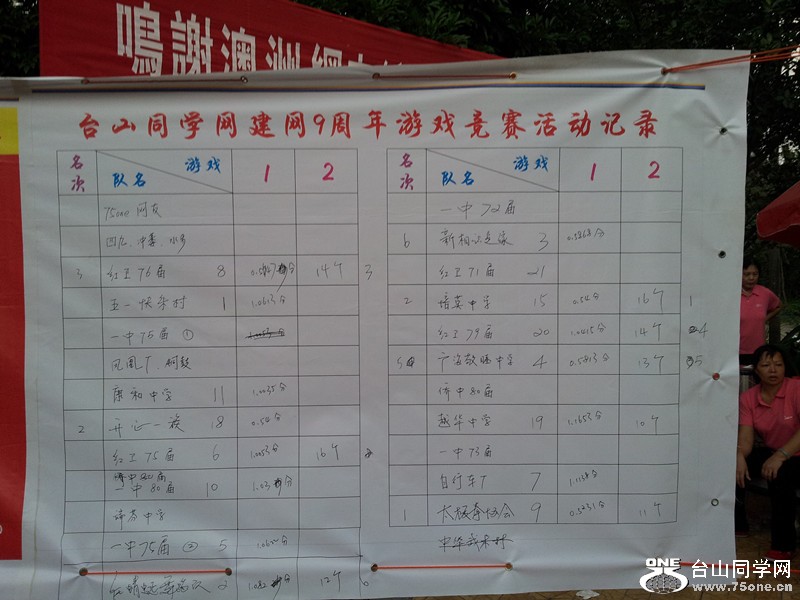 鳴謝澳洲網
台山同学网建网9周年游戏竞赛活动记录
名次 游戏 队名 1 2
名次 游戏 队名 1 2
75one 网友
3 红卫76届 8 14个 3
五一快乐村 1 1.0613分
一中75届 ①
康和中学 11 1.0035分
2 开心一族 18 0.54分
红卫75届 6 1.0053分 16个 2
侨中80届
一中80届 10
一中75届 ② 5
2 12个 6
一中72届
6 3 0.5868分
红卫71届 21
2 培英中学 15 0.54分 16个 1
红卫79届 20 1.0415分 14个 4
5 广海敬修中学 4 0.5813分 13个 5
侨中80届
越华中学 19 1.1653分 10个
一中73届
自行车厂 7 1.1138分
1 太极拳协会 9 0.5231分 11个
中华武术村
ONE 台山同学网
www.75one.cn